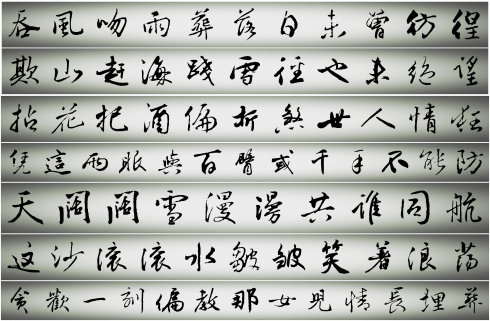 吞風吻雨葬落日未曾彷徨
欺山赶海踐雪徑也未絕望
拈花把酒偏折煞世人情狂
凭這兩眼與百臂或千手不能防
天闊闊雪漫漫共誰同航
这沙滾滾水皺皺笑着浪蕩
貪歡一刻偏教那女兒情長埋葬